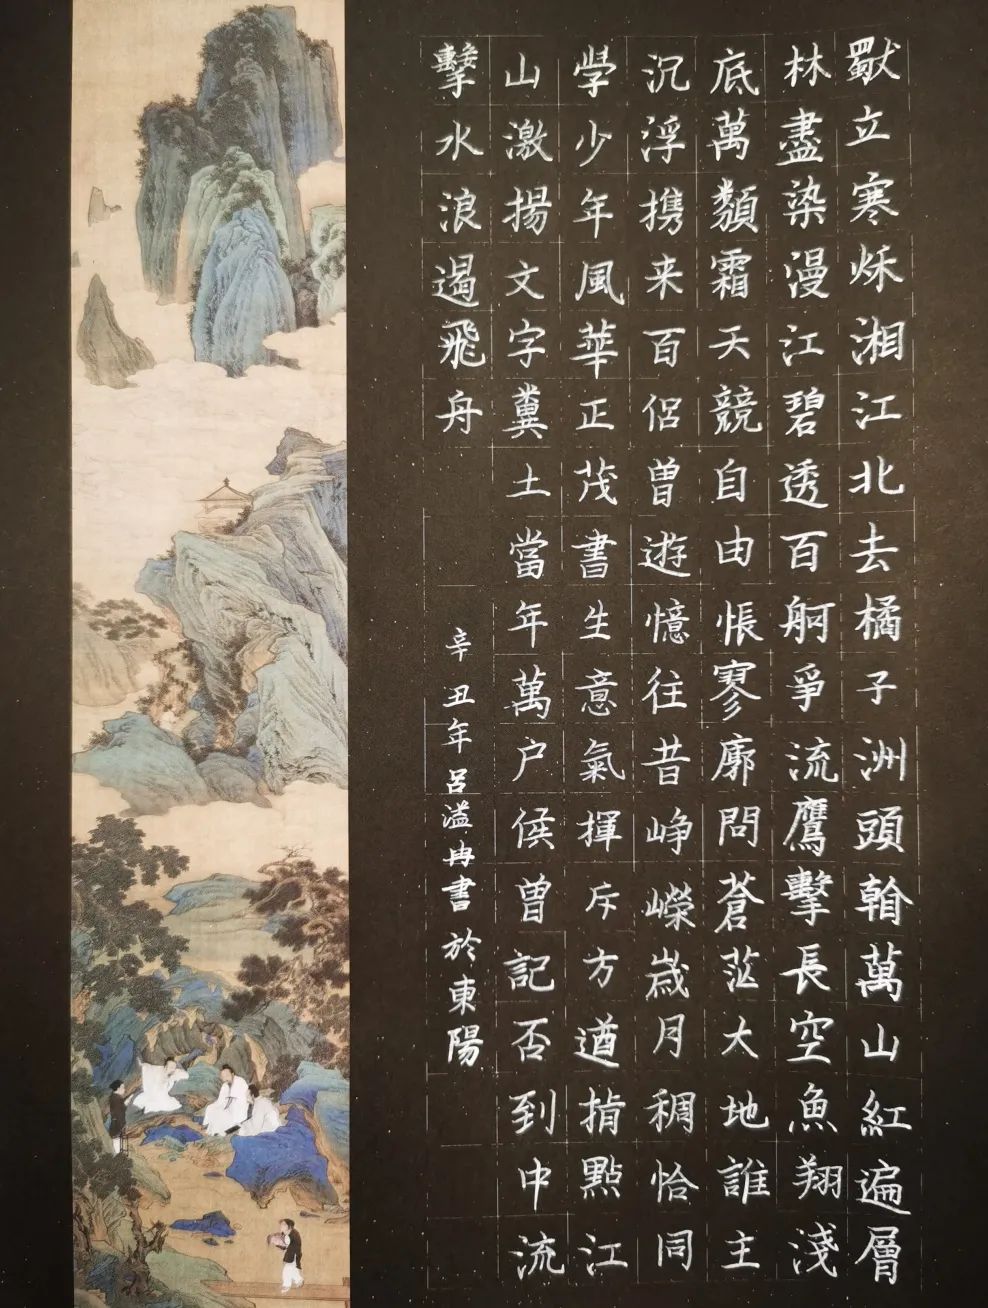 獨立寒秌湘江北去橘子洲頭看萬山紅遍層
林盡染漫江碧透百舸爭流鷹擊長空魚翔淺
底萬類霜天競自由悵寥廓問蒼茫大地誰主
沉浮携来百侣曾遊憶往昔崢嶸歲月稠恰同
學少年風華正茂書生意氣揮斥方遒指點江
山激揚文字糞土當年萬户侯曾記否到中流
擊水浪遏飛舟
辛丑年呂溢冉書於東陽